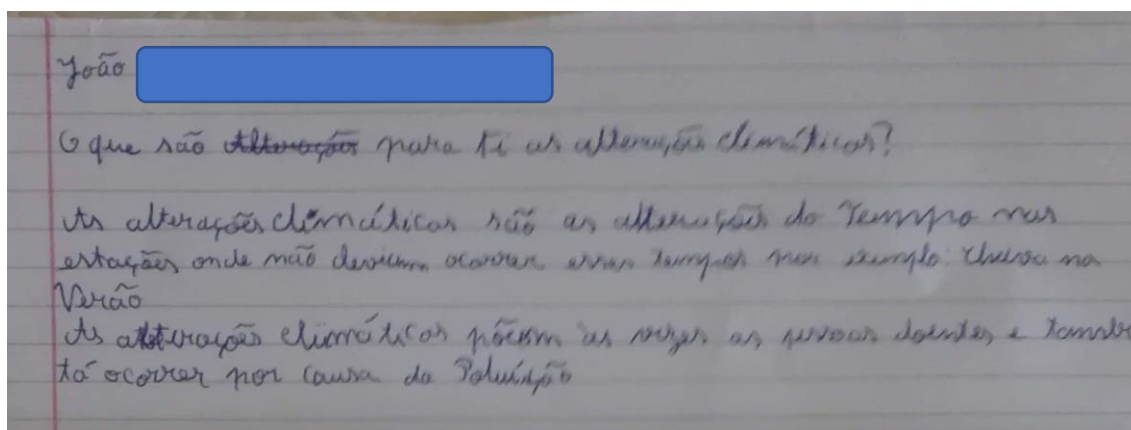 João
O que são Alteração para ti as alterações climáticas?
As alterações climáticas são as alterações do Tempo nas
estações onde não deviam ocorrer esses tempos por exemplo: chuva no
Verão
As alterações climáticas põem às vezes as pessoas doentes e
tá ocorrer por causa da Poluíção